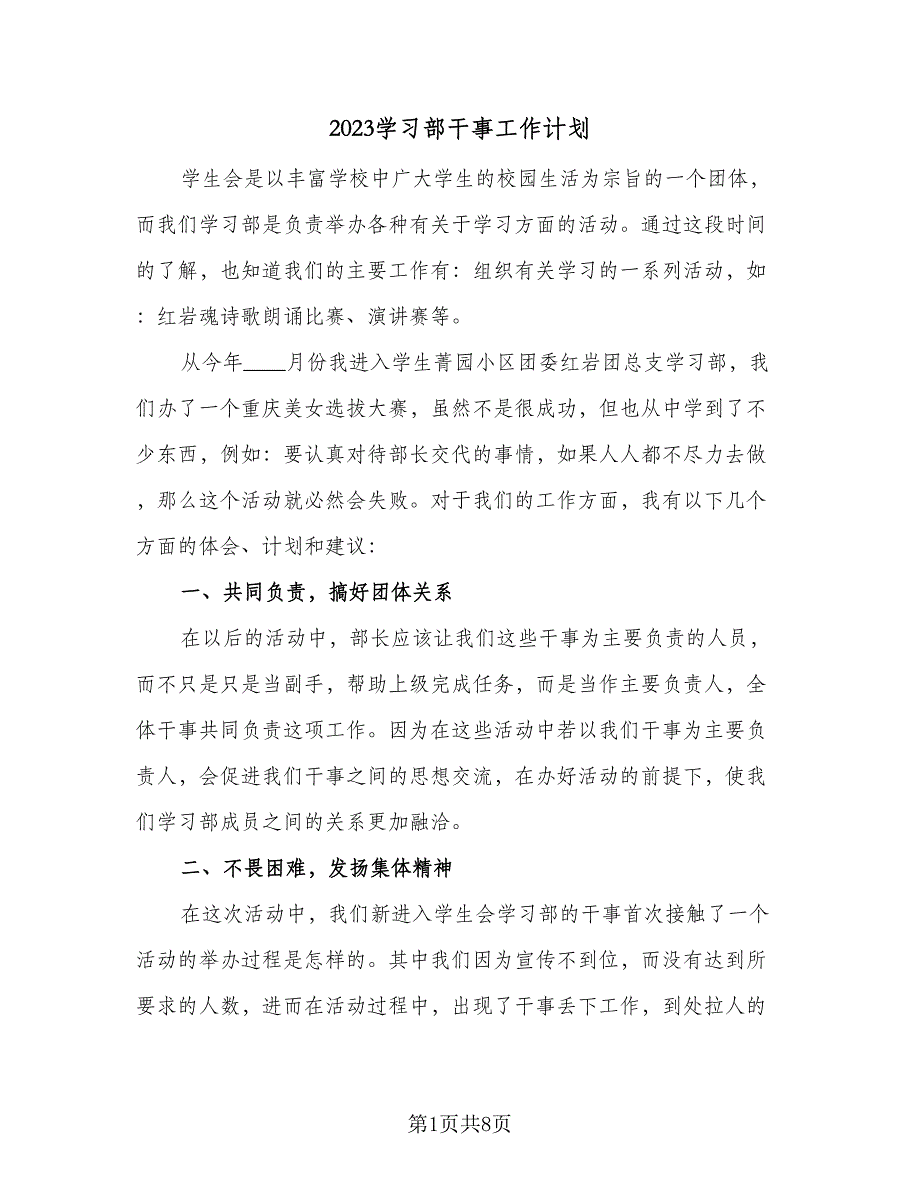 2023学习部干事工作计划
学生会是以丰富学校中广大学生的校园生活为宗旨的一个团体，
而我们学习部是负责举办各种有关于学习方面的活动。通过这段时间
的了解，也知道我们的主要工作有：组织有关学习的一系列活动，如
：红岩魂诗歌朗诵比赛、演讲赛等。
从今年____月份我进入学生菁园小区团委红岩团总支学习部，我
们办了一个重庆美女选拔大赛，虽然不是很成功，但也从中学到了不
少东西，例如：要认真对待部长交代的事情，如果人人都不尽力去做
，那么这个活动就必然会失败。对于我们的工作方面，我有以下几个
方面的体会、计划和建议：
一、共同负责，搞好团体关系
在以后的活动中，部长应该让我们这些干事为主要负责的人员，
而不只是只是当副手，帮助上级完成任务，而是当作主要负责人，全
体干事共同负责这项工作。因为在这些活动中若以我们干事为主要负
责人，会促进我们干事之间的思想交流，在办好活动的前提下，使我
们学习部成员之间的关系更加融洽。
二、不畏困难，发扬集体精神
在这次活动中，我们新进入学生会学习部的干事首次接触了一个
活动的举办过程是怎样的。其中我们因为宣传不到位，而没有达到所
要求的人数，进而在活动过程中，出现了干事丢下工作，到处拉人的
第1页共8页